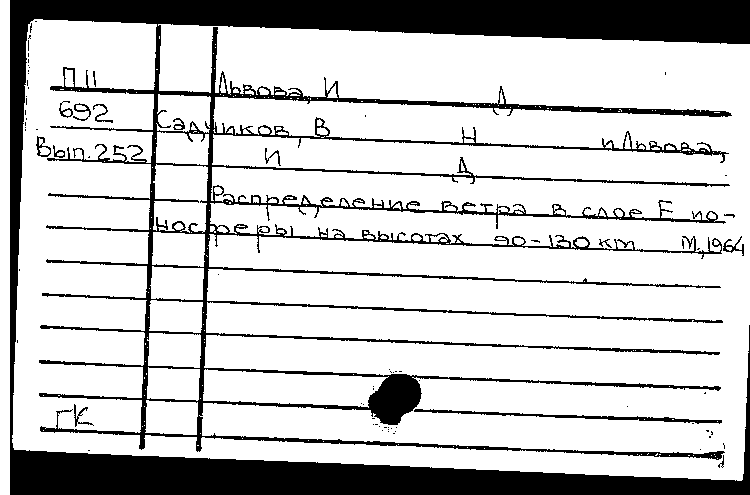 П11 Львова, И Д
692 Садчиков, В Н и Львова,
Вып. 252 И Д
Распределение ветра в слое E ио-
носферы на высотах 90-130 км М, 1964
ГК